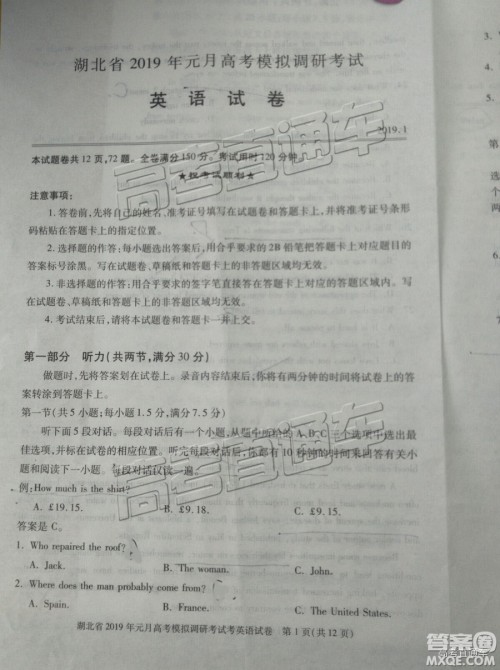 湖北省 2019 年元月高考模拟调研考试
英 语 试 卷
2019.1
本试题卷共 12 页,72 题。全卷满分 150 分。考试用时 120 分钟。
★祝考试顺利★
注意事项:
1. 答卷前,先将自己的姓名、准考证号填写在试题卷和答题卡上,并将准考证号条形
码粘贴在答题卡上的指定位置。
2. 选择题的作答:每小题选出答案后,用合乎要求的 2B 铅笔把答题卡上对应题目的
答案标号涂黑。写在试题卷、草稿纸和答题卡上的非答题区域均无效。
3. 非选择题的作答:用合乎要求的签字笔直接答在答题卡上对应的答题区域内。写
在试题卷、草稿纸和答题卡上的非答题区域均无效。
4. 考试结束后,请将本试题卷和答题卡一并上交。
第一部分 听力(共两节,满分 30 分)
做题时,先将答案划在试卷上。录音内容结束后,你将有两分钟的时间将试卷上的答
案转涂到答题卡上。
第一节(共 5 小题;每小题 1.5 分,满分 7.5 分)
听下面 5 段对话。每段对话后有一个小题,从题中所给的 A、B、C 三个选项中选出最
佳选项,并标在试卷的相应位置。听完每段对话后,你都有 10 秒钟的时间来回答有关小
题和阅读下一小题。每段对话仅读一遍。
例:How much is the shirt?
A. £19.15. B. £9.18. C. £9.15.
答案是 C。
1. Who repaired the roof?
A. Jack. B. The woman. C. John.
2. Where does the man probably come from?
A. Britain. B. Spain. C. The United States.
湖北省 2019 年元月高考模拟调研考试考英语试卷 第 1 页(共 12 页)
高考直通车
高考直通车
高考直通车
答案圈